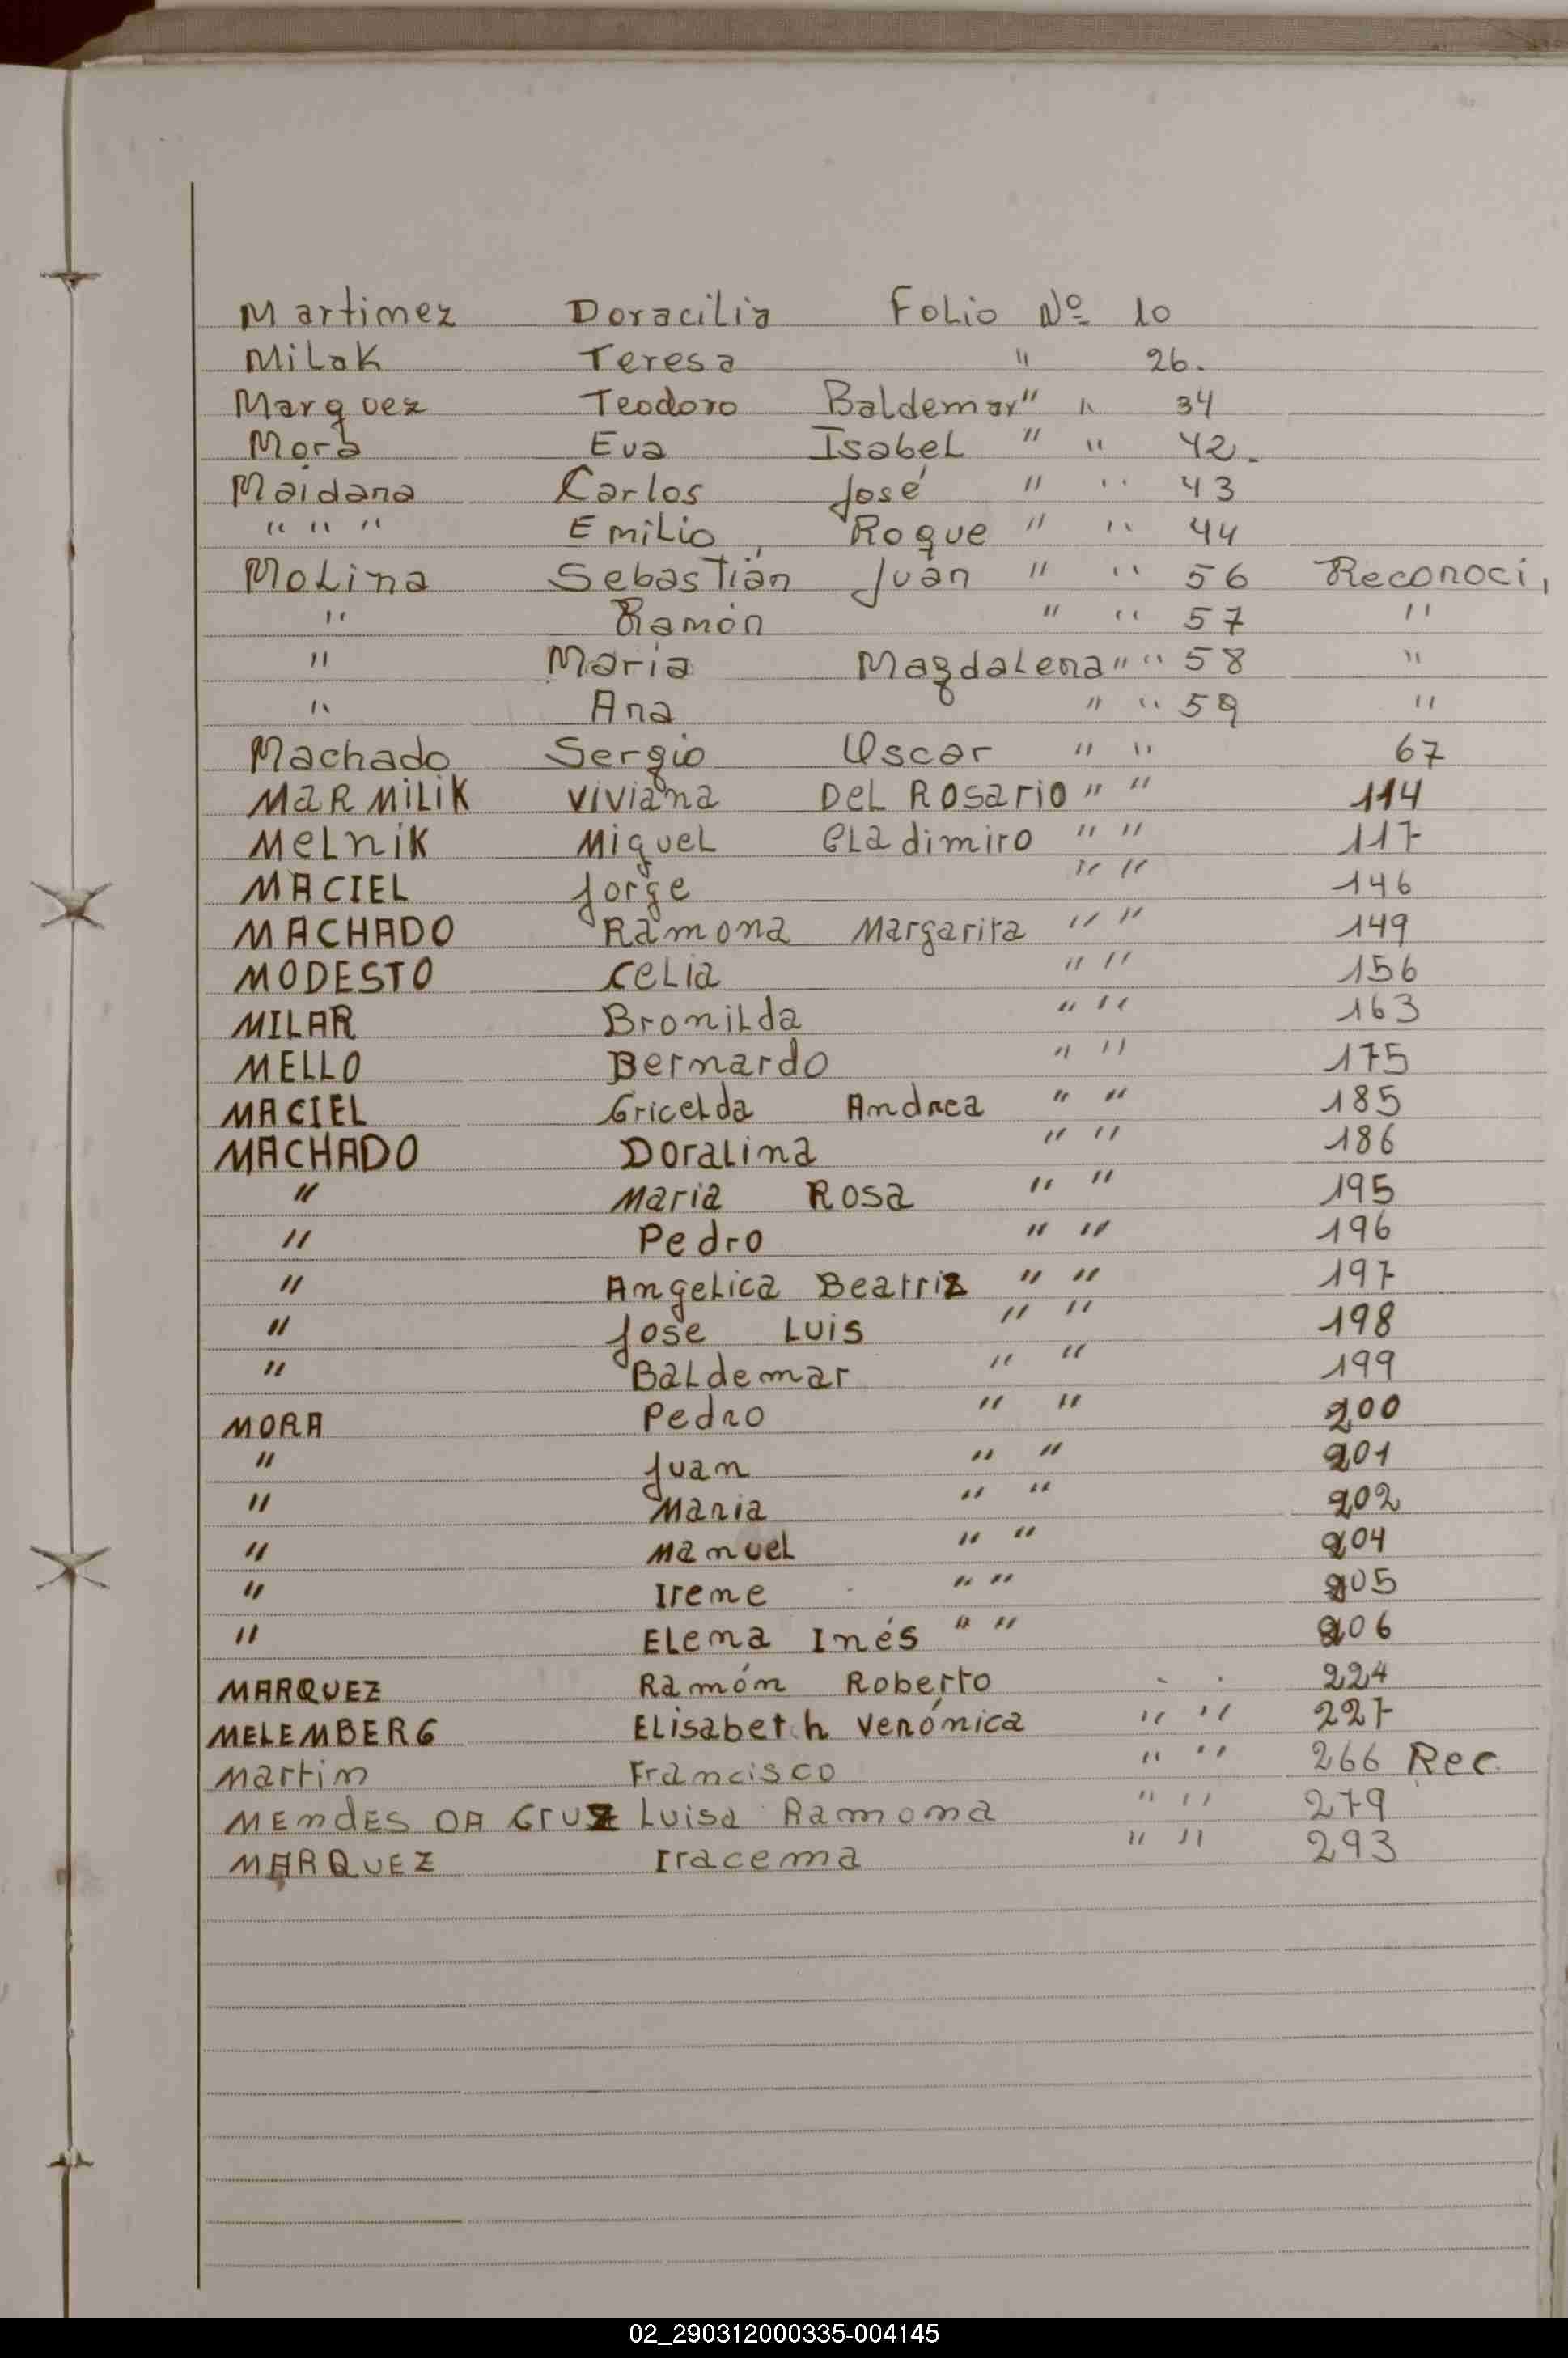 Martimez Doracilia Folio Nº 10
Milak Teresa " 26.
Marquez Teodoro Baldemar " " 34
Mora Eva Isabel " " 42.
Maidana Carlos José " " 43
" " " Emilio, Roque " " 44
Molina Sebastián Juan " " 56 Reconoci,
" Ramón " " 57 "
" Maria Magdalena " " 58 "
" Ana " " 59 "
Machado Sergio Oscar " " 67
MaRMiLiK Viviana DeL Rosario " " 114
MeLniK MigueL GLadimiro " " 117
MACIEL Jorge " " 146
MACHADO Ramona Margarita " " 149
MODESTO CeLia " " 156
MILAR BroniLda " " 163
MELLO Bernardo " " 175
MACIEL GriceLda Andrea " " 185
MACHADO DoraLina " " 186
" Maria Rosa " " 195
" Pedro " " 196
" AngeLica Beatriz " " 197
" Jose Luis " " 198
" BaLdemar " " 199
MORA Pedro " " 200
" Juan " " 201
" Maria " " 202
" ManueL " " 204
" Irene " " 205
" ELena Inés " " 206
MARQUEZ Ramón Roberto . . 224
MELEMBERG ELisabeth Verónica " " 227
Martin Francisco " " 266 Rec.
MEndES DA CruZ Luisa Ramona " " 279
MARQUEZ Iracema " " 293
02_290312000335-004145